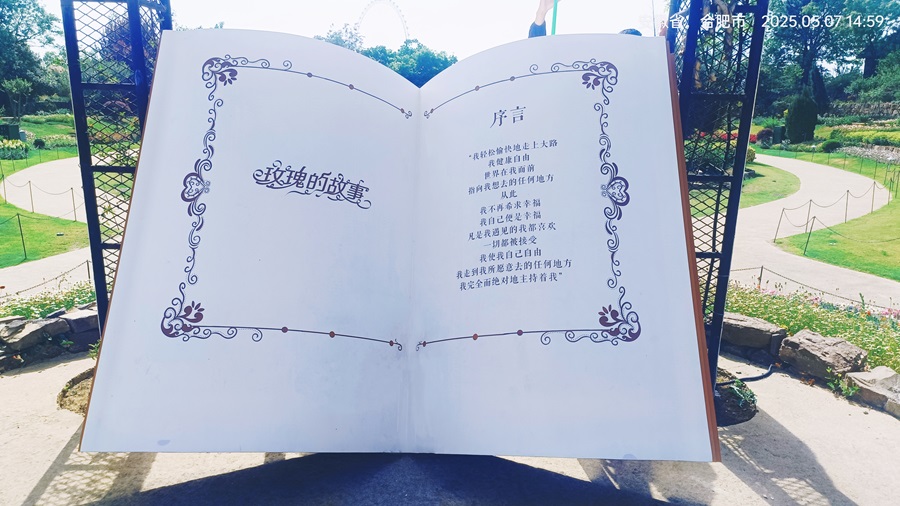 省 合肥市 2025.05.07 14:59
玫瑰的故事
序言
“我轻松愉快地走上大路
我健康自由
世界在我面前
指向我想去的任何地方
从此
我不再希求幸福
我自己便是幸福
凡是我遇见的我都喜欢
一切都被接受
我使我自己自由
我走到我所愿意去的任何地方
我完全而绝对地主持着我”